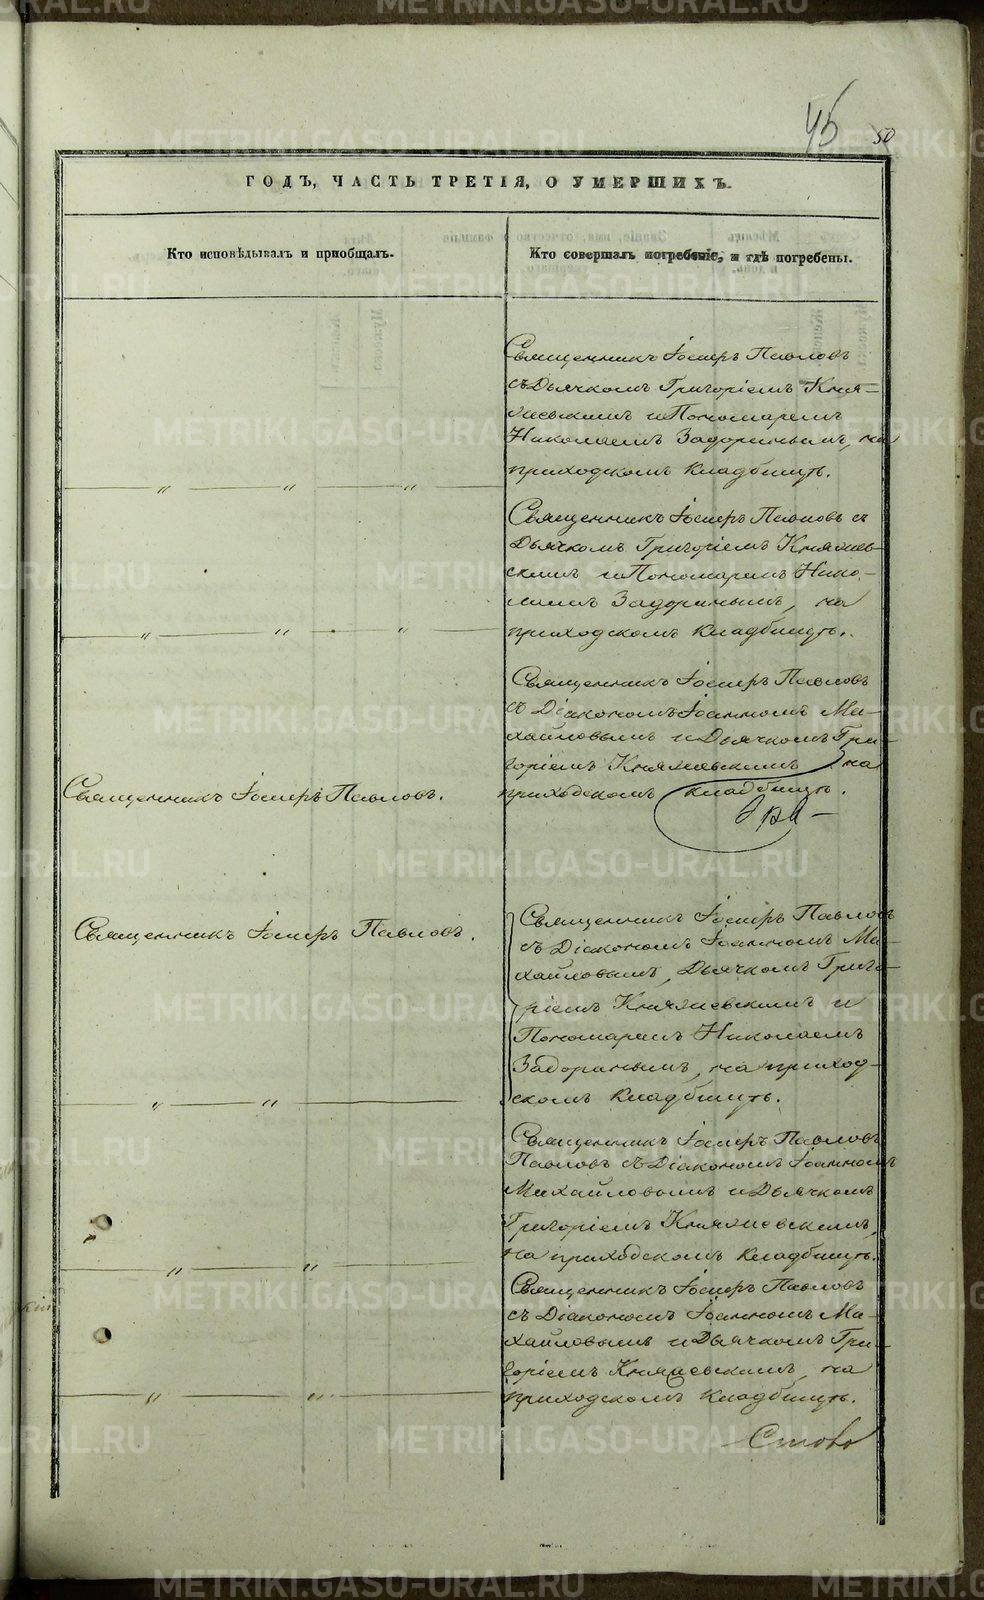 45 50
ГОДЪ, ЧАСТЬ ТРЕТІЯ, О УМЕРШИХЪ.
Кто исповѣдывалъ и пріобщалъ.
Кто совершалъ погребеніе, и гдѣ погребены.
Священникъ Іосифъ Павловъ
съ Дьячкомъ Григоріемъ Кня-
жевскимъ и Пономаремъ
Николаемъ Задоринымъ, на
приходскомъ кладбищѣ.
Священникъ Іосифъ Павловъ съ
Дьячкомъ Григоріемъ Княжев-
скимъ и Пономаремъ Нико-
лаемъ Задоринымъ, на
приходскомъ кладбищѣ.
Священникъ Іосифъ Павловъ
съ Діакономъ Іоанномъ Ми-
хайловымъ и Дьячкомъ Гри-
горіемъ Княжевскимъ на
Священникъ Іосифъ Павловъ.
приходскомъ кладбищѣ.
Священникъ Іосифъ Павловъ.
Священникъ Іосифъ Павловъ
съ Діакономъ Іоанномъ Ми-
хайловымъ, Дьячкомъ Григо-
ріемъ Княжевскимъ и
Пономаремъ Николаемъ
Задоринымъ, на приход-
скомъ кладбищѣ.
Священникъ Іосифъ Павловъ
Павловъ съ Діакономъ Іоанномъ
Михайловымъ и Дьячкомъ
Григоріемъ Княжевскимъ,
на приходскомъ кладбищѣ.
Священникъ Іосифъ Павловъ
съ Діакономъ Іоанномъ Ми-
хайловымъ и Дьячкомъ Гри-
горіемъ Княжевскимъ, на
приходскомъ кладбищѣ.
METRIKI.GASO-URAL.RU